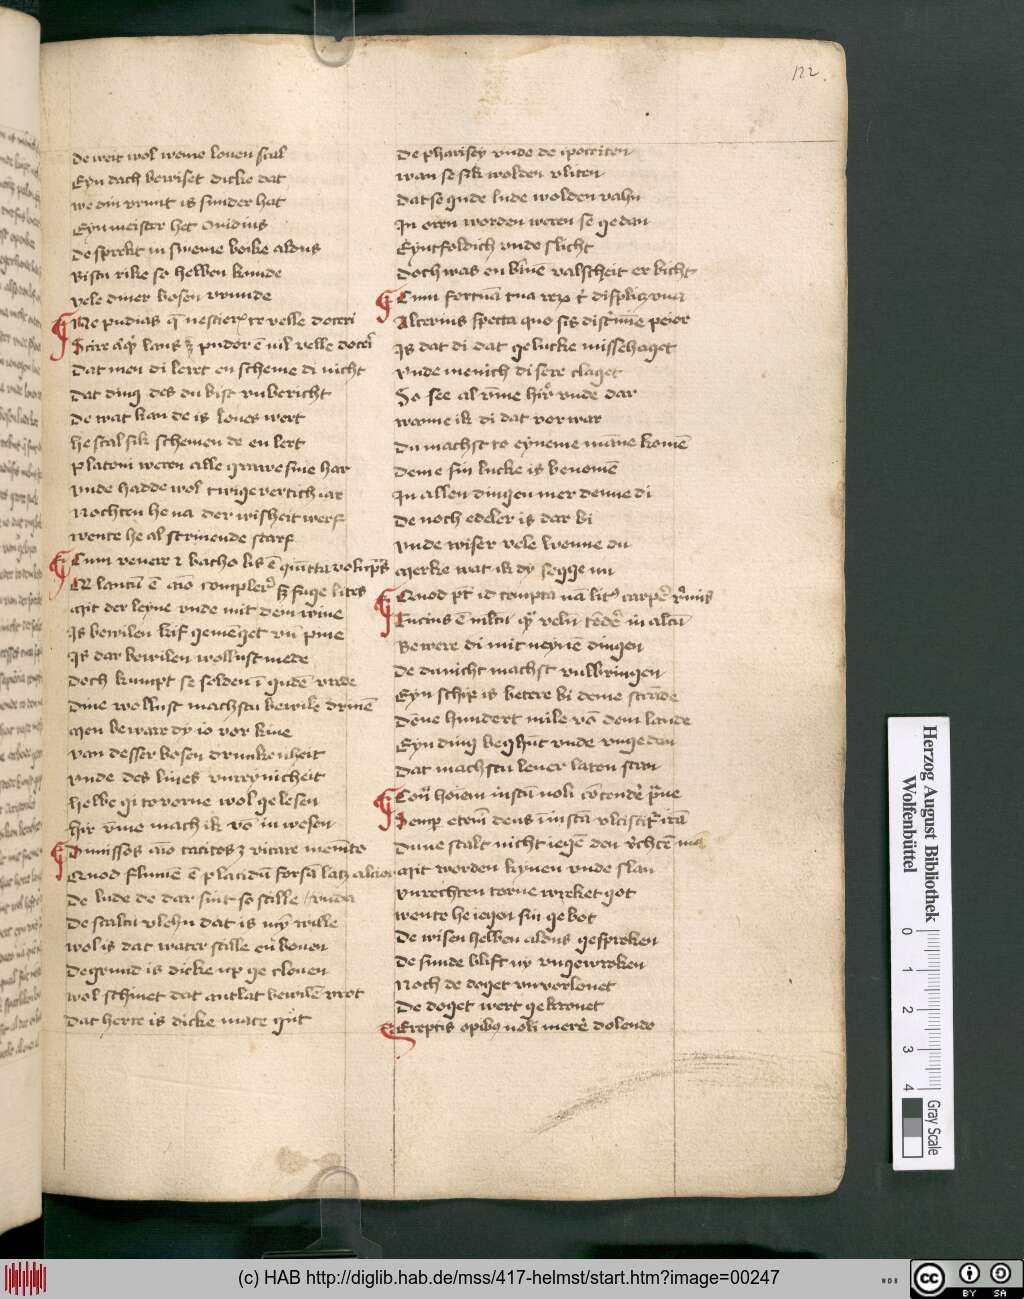 122
De weit wol weme louen scal
Eyn dach bewiset dicke dat
we din vrunt is sunder hat
Eyn meister het Ouidius
De sprekt in sineme boike aldus
Bistu rike so hebben kunde
vele diner bosen vrunde
Ne pudias q̄ nescier te velle doceri
Scire laus pudor ē nil velle
Dat men di leret en scheme di nicht
Dat ding des du bist vnbericht
De wat kan de is loues wert
he scal sik schemen de en lert
Platoni weren alle grawe sine har
vnde hadde wol twige vertich iar
Nochten he na der wisheit werf
wente he al scriuende starf
Cum venere bacho lis ē
ē aīo fuge lites
Mit der leyue vnde mit dem wine
Is bewilen kif gemēget vn̄ pine
Is dar bewilen wollust mede
Doch kumpt se selden ī gude vrede
Dine wollust machstu bewilē driuē
Men beware dy io vor kiue
van desser bosen drunkenheit
vnde des liues vnreynicheit
hebbe gi to vorne wol gelesen
hir vm̄e mach ik vō in wesen
Dimissos aīo tacitos vitare memēto
Quod flumē ē placidū forsā
De lude de dar sint so stille
De scaltu vlehn dat is mȳ wille
wol is dat water stille en bouen
De grund is dicke up ge clouen
wol schinet dat antlat bewilē vrot
Dat herte is dicke mate gut
De pharisey vnde de ipocriten
wan se sik wolden vliten
Dat se gude lude wolden vahn
In eren worden weren se gedan
Eyntfoldich vnde slicht
Doch was en bīnē valscheit er bicht
Cum fortūa tua
Alterius specta quo sis peior
Is dat di dat gelucke missehaget
vnde menich di sere claget
So see al vm̄e hir vnde dar
wanne ik di dat vor war
Du machst to eyneme māne komē
Deme sin lucke is benomē
In allen dingen mer denne di
De noch edeler is dar bi
vnde wiser vele wenne du
Merke wat ik dy segge nu
Quod pt̄ id tempta nā carpe
Tucius ē in altū
Bewere di mit neynē dingen
De du nicht machst vullbringen
Eyn schip is betere bi deme strāde
Dēne hundert mile vō dem lande
Eyn ding begūt vnde vngedan
Dat machstu leuer laten stan
noli
Semp deus īiusta vlciscit irā
Du ne scalt nicht iegē den
Mit worden kyuen vnde slan
vnrechten torne wreket got
wente he iegen sin gebot
De wisen hebben aldus gespreken
De sunde blift ny vngewroken
Noch de doget vnvorlonet
De doget wert gekronet
Ereptis opibus noli merere dolendo
Herzog August Bibliothek
Wolfenbüttel
0 1 2 3 4
Gray Scale
(c) HAB http://diglib.hab.de/mss/417-helmst/start.htm?image=00247
WDB
cc BY SA